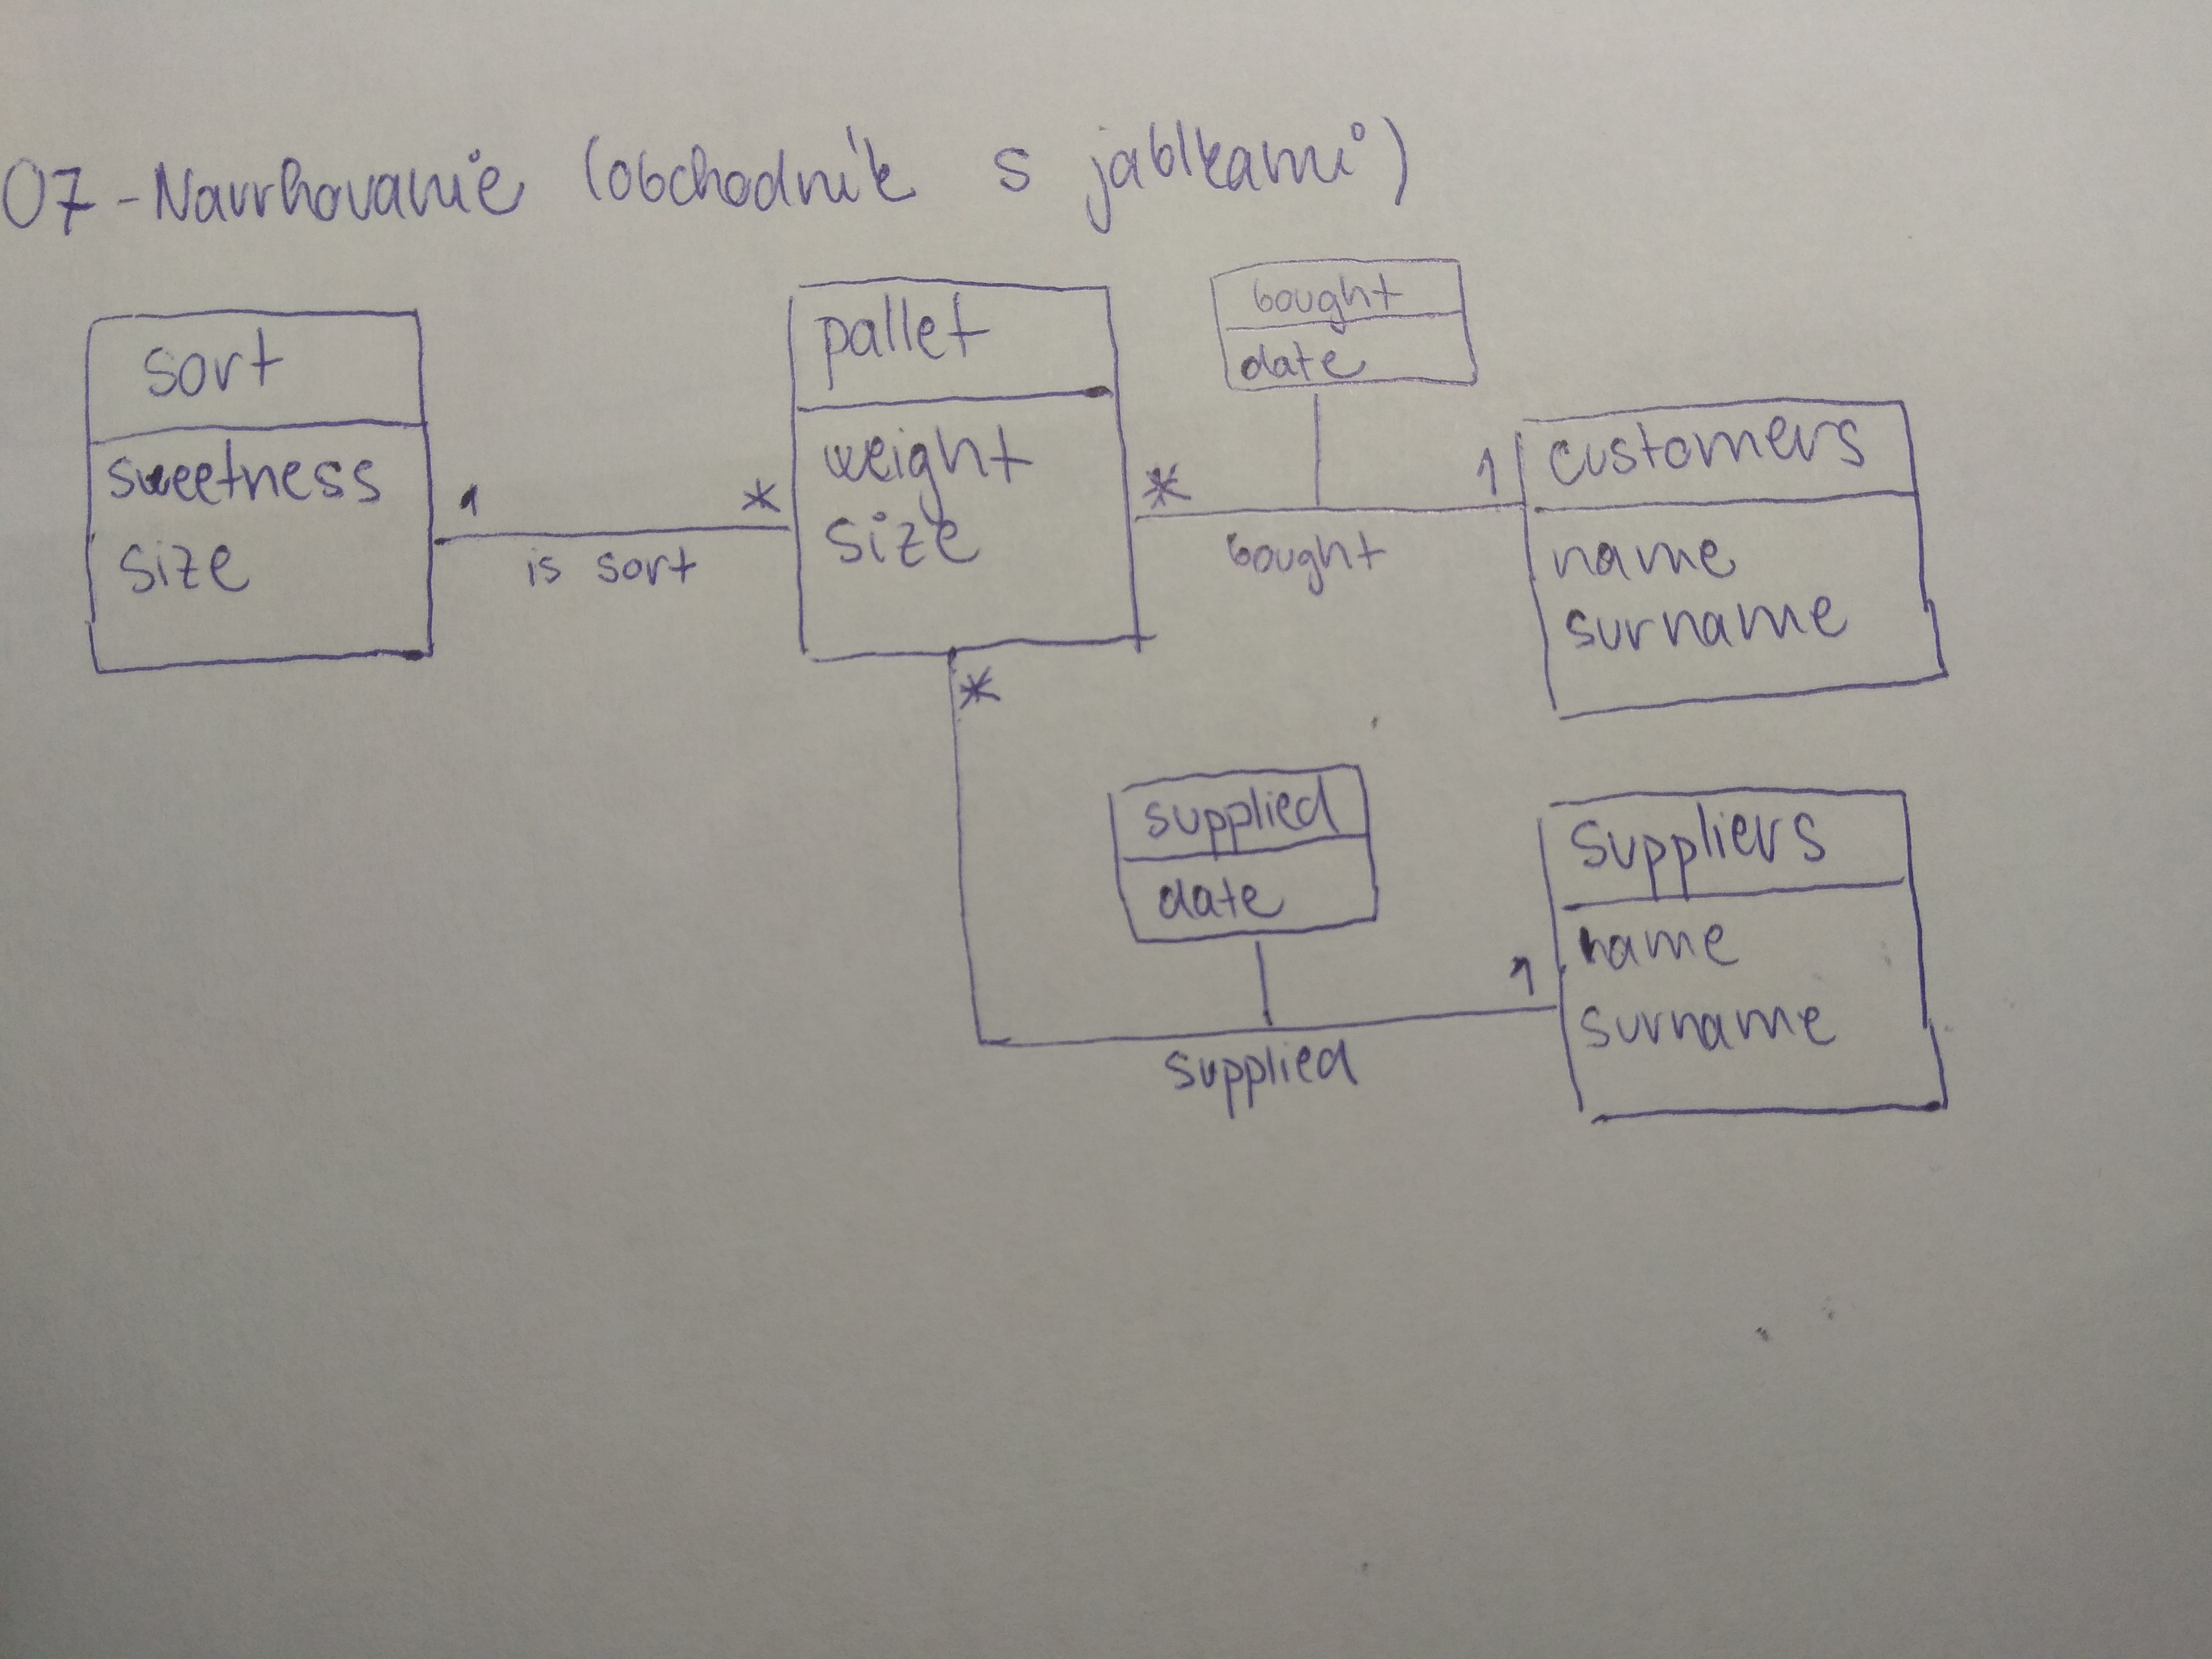 07-Navrhovanie (obchodník s jablkami)
sort
sweetness
size
1
*
is sort
pallet
weight
size
*
1
bought
bought
date
customers
name
surname
*
supplied
date
1
supplied
suppliers
name
surname